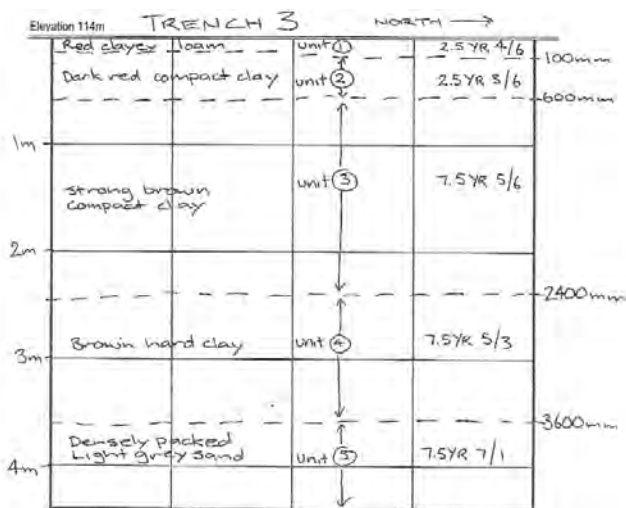 Elevation 114m TRENCH 3 NORTH →
Red clayey loam unit 1 2.5 YR 4/6
100mm
Dark red compact clay unit 2 2.5 YR 3/6
600mm
1m
strong brown unit 3 7.5 YR 5/6
compact clay
2m
2400mm
Brown hard clay unit 4 7.5 YR 5/3
3m
3600mm
Densely packed
Light grey sand unit 5 7.5 YR 7/1
4m